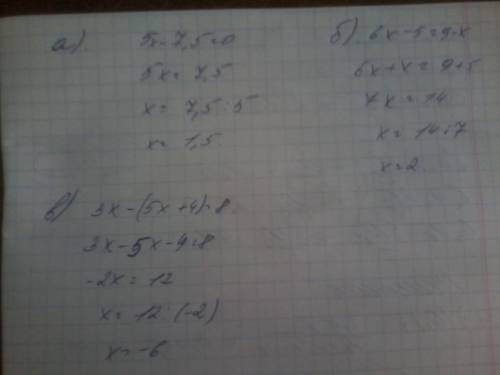 а) 5x-7,5=0
5x=7,5
x=7,5:5
x=1,5
б) 6x-5=9-x
6x+x=9+5
7x=14
x=14:7
x=2
в) 3x-(5x+4)=8
3x-5x-4=8
-2x=12
x=12:(-2)
x=-6